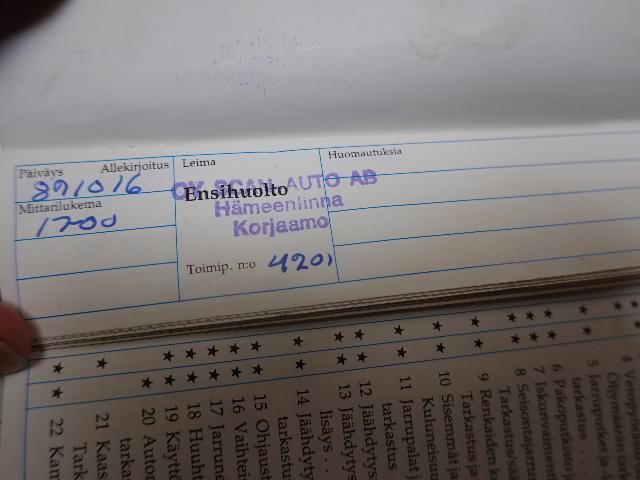 Päiväys Allekirjoitus
891016
Mittarilukema
1700
Leima
OY SCAN-AUTO AB
Ensihuolto
Hämeenlinna
Korjaamo
Toimip. n:o 4201
Huomautuksia
4
5 Jarruputket ja
tarkastus
6 Pakoputkisto
7 Iskunvaimen
8 Seisontajarru
Tarkastus/sää
9 Renkaiden ku
Tarkastus ja
10 Sisemmät ja
Kuluneisu
11 Jarrupalat j
tarkastus
12 Jäähdytys
13 Jäähdytys
lisäys . .
14 Jäähdyty
tarkastu
15 Ohjaust
16 Vaihteis
17 Jarrune
18 Huuht
19 Käyttö
20 Autom
tarka
21 Kaas
Tark
22 Kam